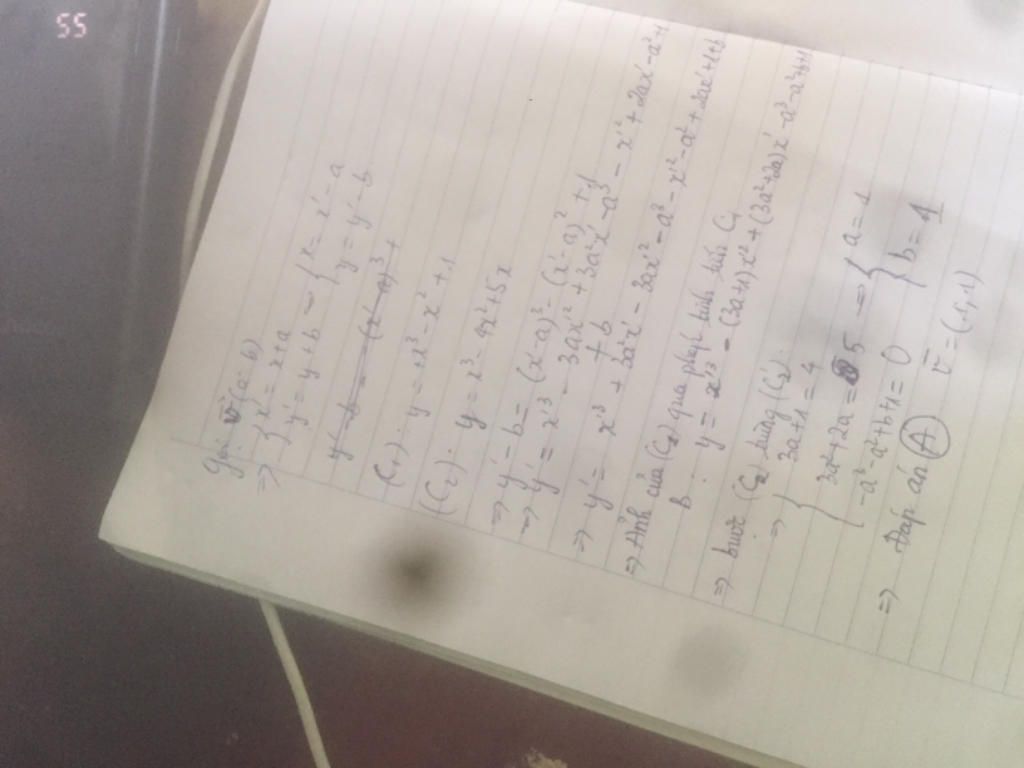 55
Gọi: v (a; b)
=> { x' = x + a
y' = y + b → { x = x' - a
y = y' - b
y' - b = (x' - a)³ +
(C₁): y = x³ - x² + 1
(C₂): y = x³ - 4x² + 5x
=> y' - b = (x' - a)³ - (x' - a)² + 1
=> y' = x'³ - 3ax'² + 3a²x' - a³ - x'² + 2ax' - a² + 1
+ b
=> y' = x'³ + 3a²x' - 3ax'² - a³ - x'² - a² + 2ax' + 1 + b
=> Ảnh của (C₂) qua phép tịnh tiến C₁
là: y = x'³ - (3a+1)x'² + (3a²+2a)x' - a³ - a² + b + 1
=> (C₂) trùng (C₂'):
=> { 3a + 1 = 4
3a² + 2a = 5 => { a = 1
-a³ - a² + b + 1 = 0 { b = 1
=> Đáp án (A) v = (1, 1)